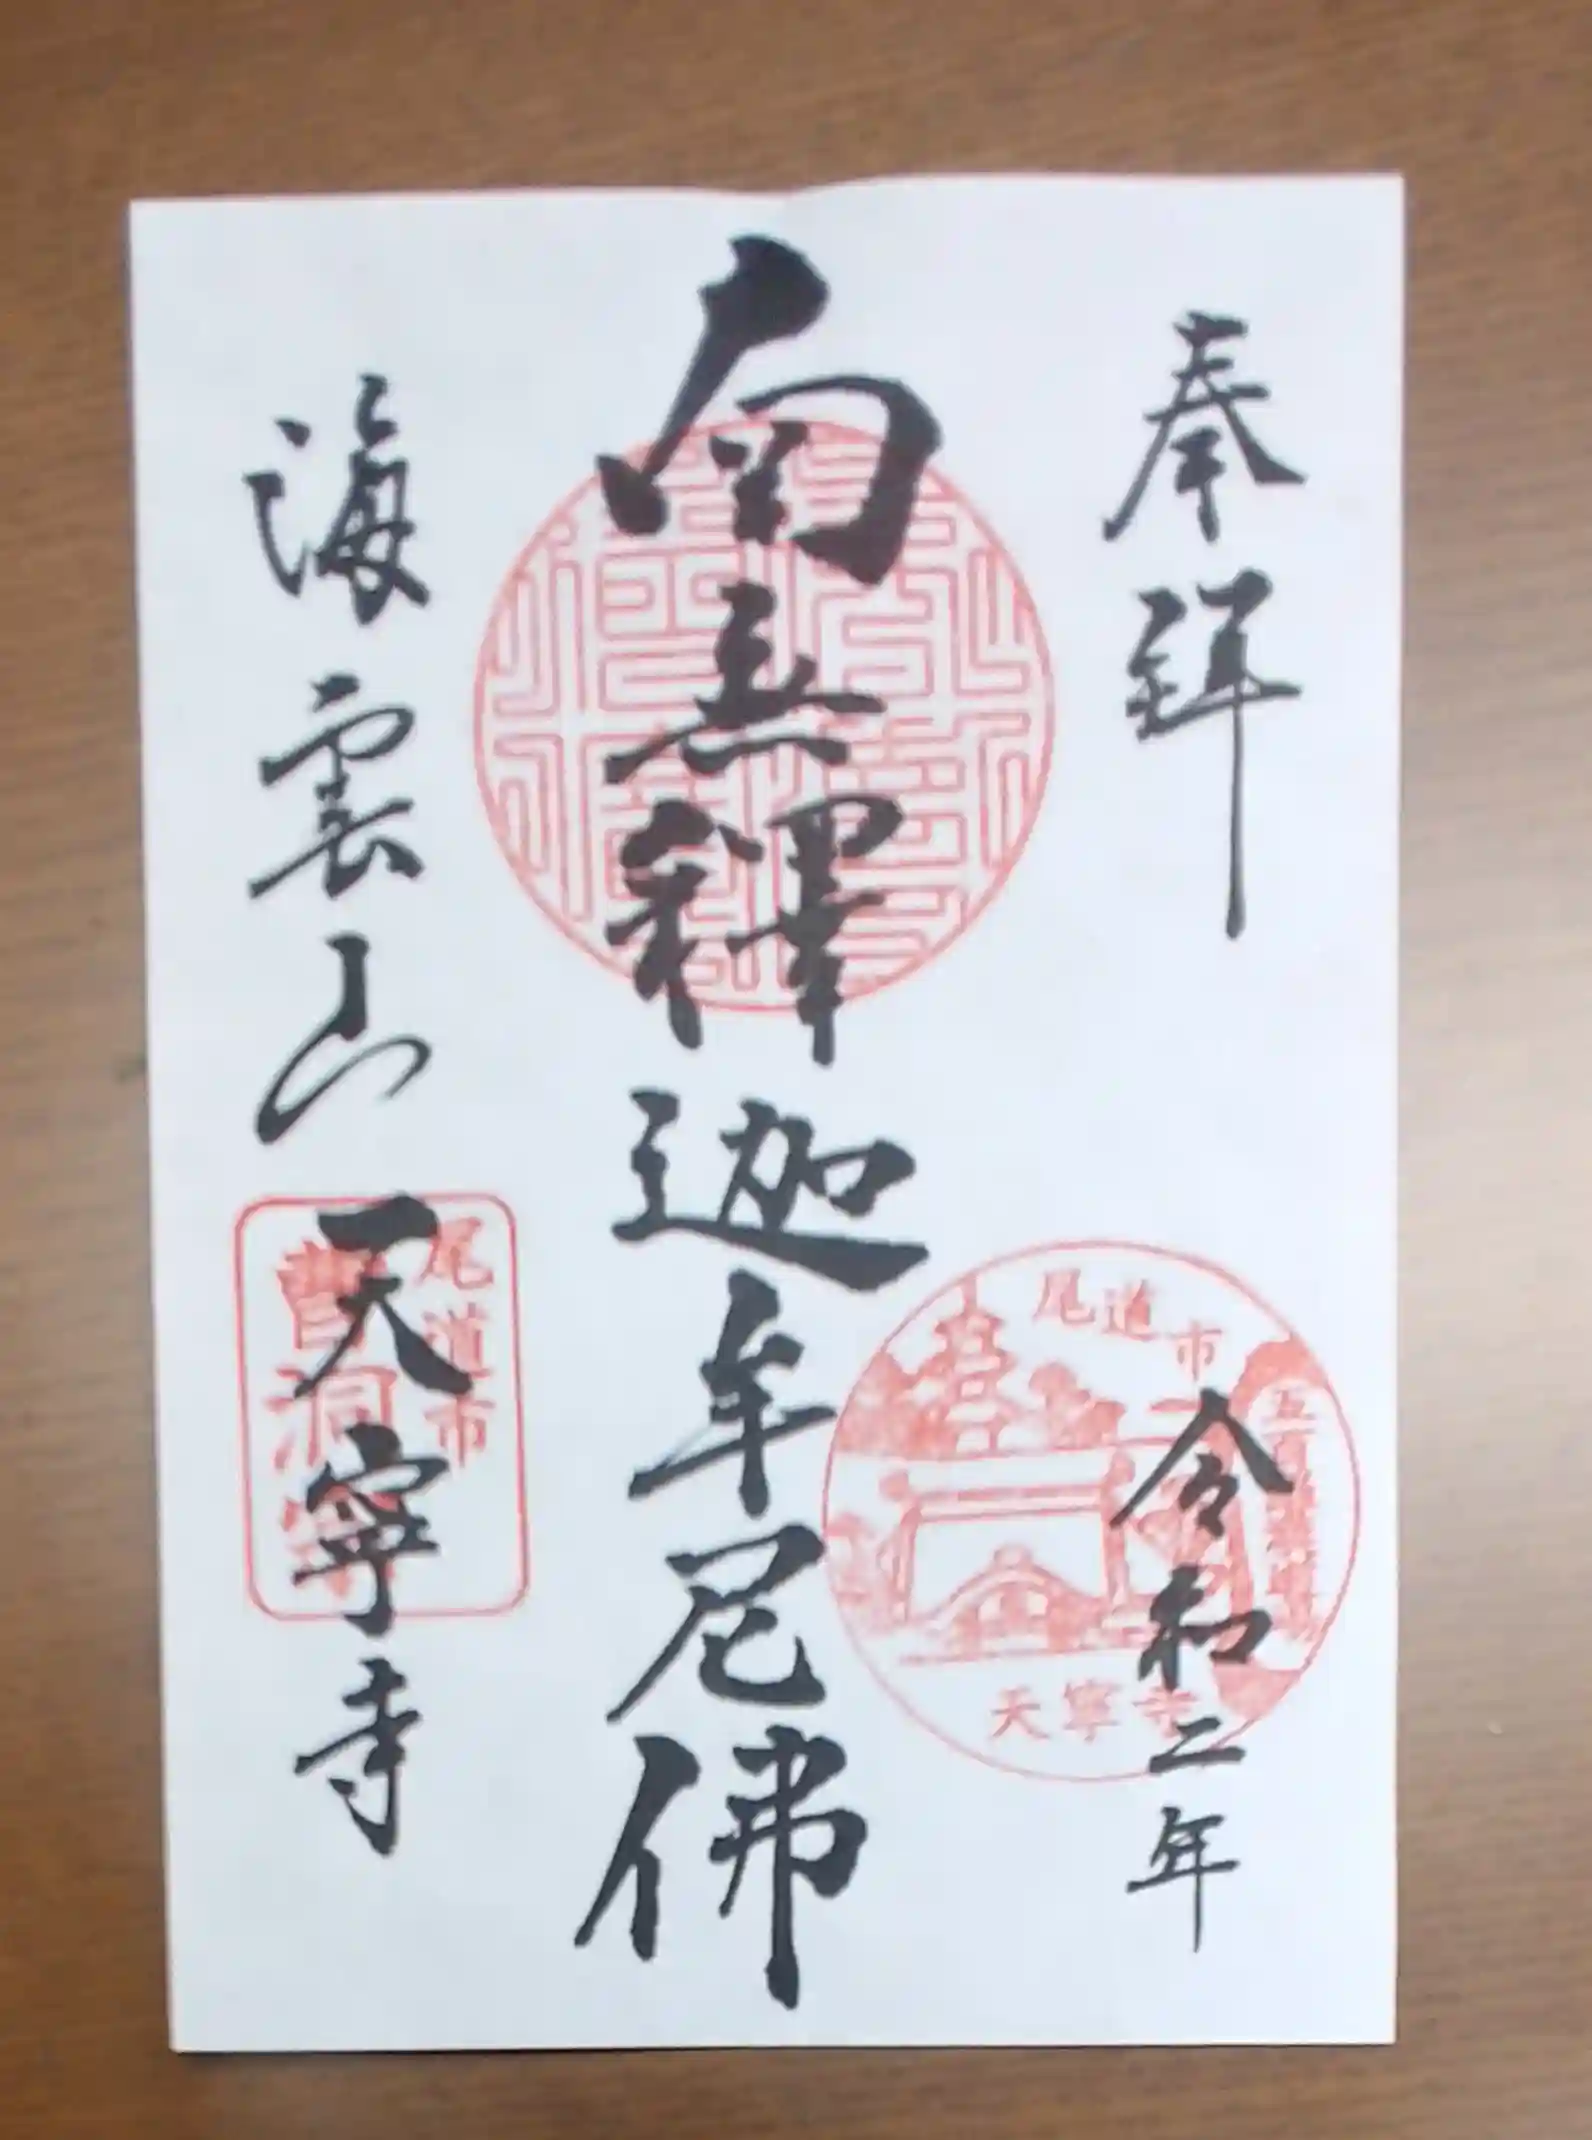 奉拜
令和二年
南無釋迦牟尼佛
海雲山天寧寺
尾道市
天寧寺
尾道市
曹洞